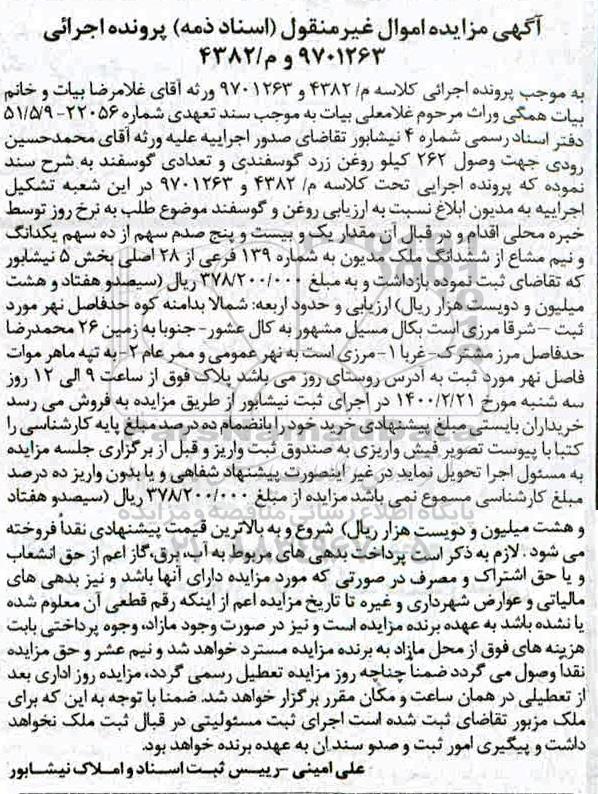 آگهی مزایده اموال غیر منقول (اسناد ذمه) پرونده اجرائی
۹۷۰۱۲۶۳ و م/۴۳۸۲
به موجب پرونده اجرائی کلاسه م/ ۴۳۸۲ و ۹۷۰۱۲۶۳ ورثه آقای غلامرضا بیات و خانم
بیات همگی وراث مرحوم غلامعلی بیات به موجب سند تعهدی شماره ۲۲۰۵۶-۵۱/۵/۹
دفتر اسناد رسمی شماره ۴ نیشابور تقاضای صدور اجراییه علیه ورثه آقای محمدحسین
رودی جهت وصول ۲۶۲ کیلو روغن زرد گوسفندی و تعدادی گوسفند به شرح سند
نموده که پرونده اجرایی تحت کلاسه م/ ۴۳۸۲ و ۹۷۰۱۲۶۳ در این شعبه تشکیل
اجراییه به مدیون ابلاغ نسبت به ارزیابی روغن و گوسفند موضوع طلب به نرخ روز توسط
خبره محلی اقدام و در قبال آن مقدار یک و بیست و پنج صدم سهم از ده سهم یکدانگ
و نیم مشاع از ششدانگ ملک مدیون به شماره ۱۳۹ فرعی از ۲۸ اصلی بخش ۵ نیشابور
که تقاضای ثبت نموده بازداشت و به مبلغ ۳۷۸/۲۰۰/۰۰۰ ریال (سیصدو هفتاد و هشت
میلیون و دویست هزار ریال) ارزیابی و حدود اربعه: شمالا بدامنه کوه حدفاصل نهر مورد
ثبت – شرقا مرزی است بکال مسیل مشهور به کال عشور- جنوبا به زمین ۲۶ محمدرضا
حدفاصل مرز مشترک- غربا ۱- مرزی است به نهر عمومی و ممر عام ۲- به تپه ماهر موات
فاصل نهر مورد ثبت به آدرس روستای روز می باشد پلاک فوق از ساعت ۹ الی ۱۲ روز
سه شنبه مورخ ۱۴۰۰/۲/۲۱ در اجرای ثبت نیشابور از طریق مزایده به فروش می رسد
خریداران بایستی مبلغ پیشنهادی خرید خود را بانضمام ده درصد مبلغ پایه کارشناسی را
کتبا با پیوست تصویر فیش واریزی به صندوق ثبت واریز و قبل از برگزاری جلسه مزایده
به مسئول اجرا تحویل نماید در غیر اینصورت پیشنهاد شفاهی و یا بدون واریز ده درصد
مبلغ کارشناسی مسموع نمی باشد مزایده از مبلغ ۳۷۸/۲۰۰/۰۰۰ ریال (سیصدو هفتاد
و هشت میلیون و دویست هزار ریال) شروع و به بالاترین قیمت پیشنهادی نقداً فروخته
می شود . لازم به ذکر است پرداخت بدهی های مربوط به آب، برق،گاز اعم از حق انشعاب
و یا حق اشتراک و مصرف در صورتی که مورد مزایده دارای آنها باشد و نیز بدهی های
مالیاتی و عوارض شهرداری و غیره تا تاریخ مزایده اعم از اینکه رقم قطعی آن معلوم شده
یا نشده باشد به عهده برنده مزایده است و نیز در صورت وجود مازاد، وجوه پرداختی بابت
هزینه های فوق از محل مازاد به برنده مزایده مسترد خواهد شد و نیم عشر و حق مزایده
نقداً وصول می گردد ضمناً چناچه روز مزایده تعطیل رسمی گردد، مزایده روز اداری بعد
از تعطیلی در همان ساعت و مکان مقرر برگزار خواهد شد. ضمنا با توجه به این که برای
ملک مزبور تقاضای ثبت شده است اجرای ثبت مسئولیتی در قبال ثبت ملک نخواهد
داشت و پیگیری امور ثبت و صدو سند ان به عهده برنده خواهد بود.
علی امینی – رییس ثبت اسناد و املاک نیشابور
ParsNamadData
پایگاه اطلاع رسانی مناقصه و مزایده